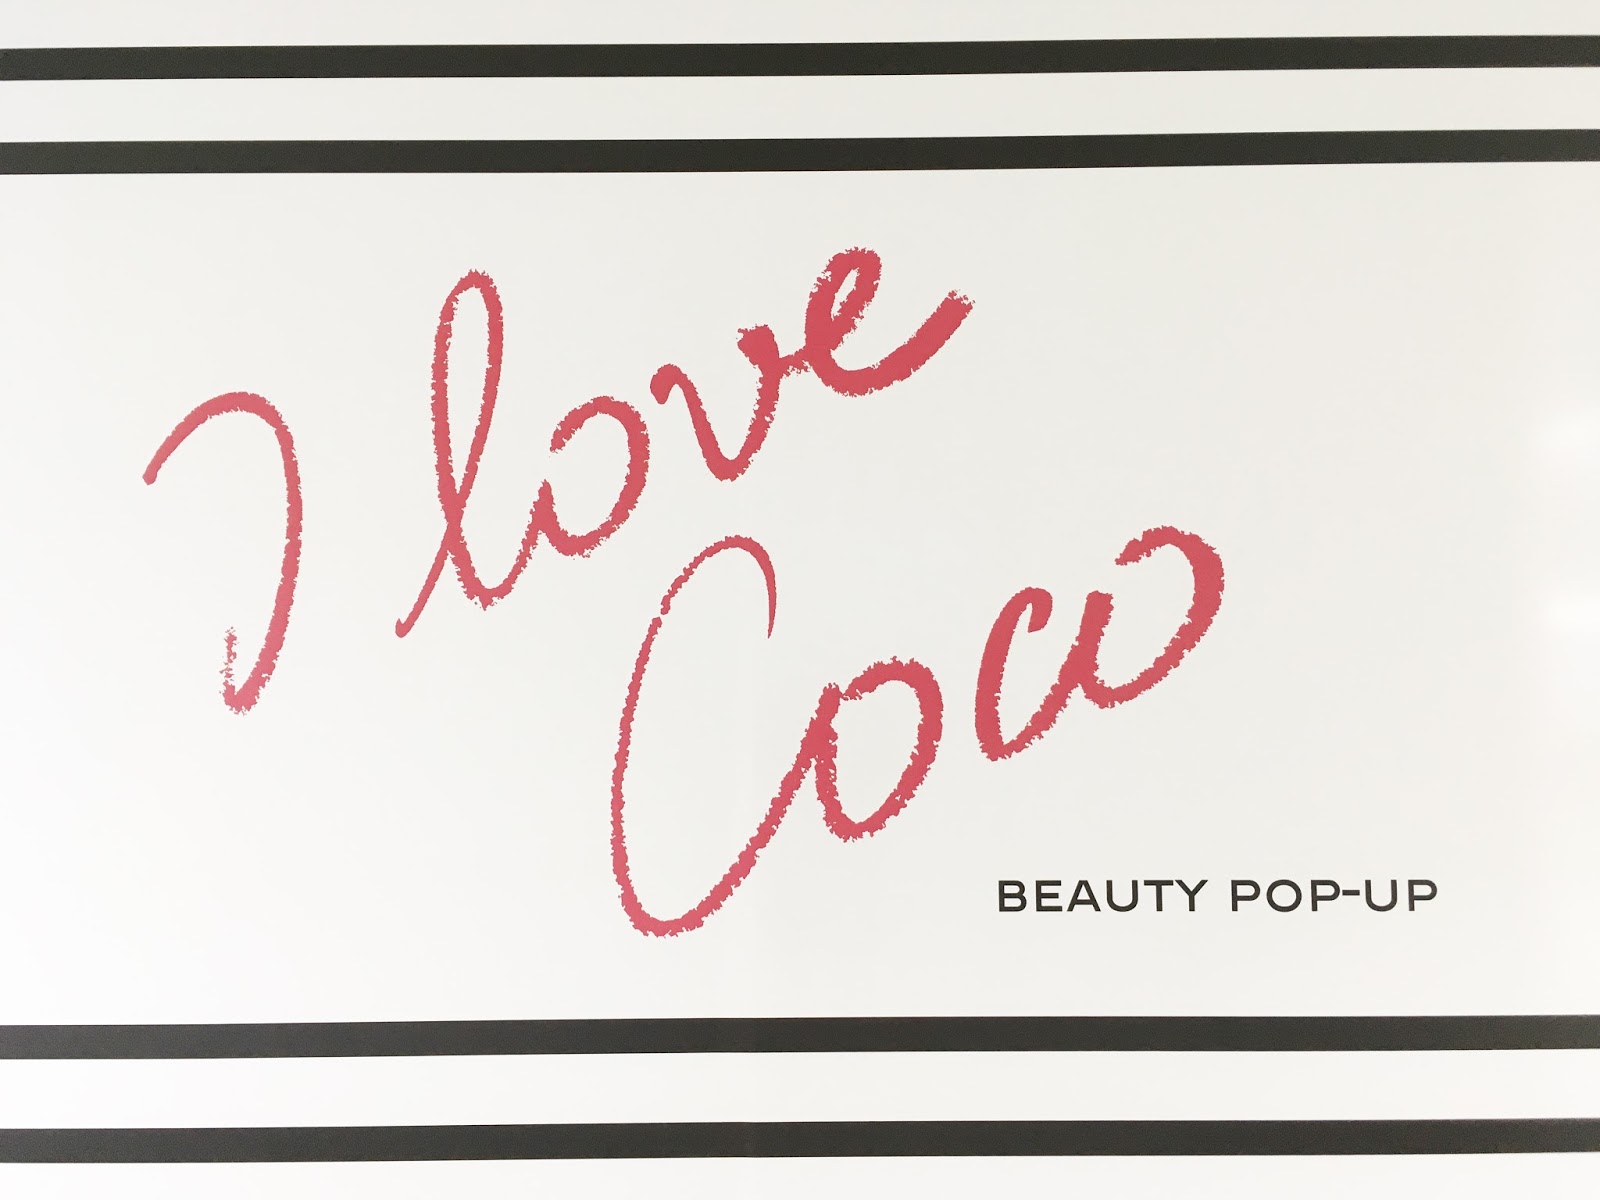 I love
Coco
BEAUTY POP-UP